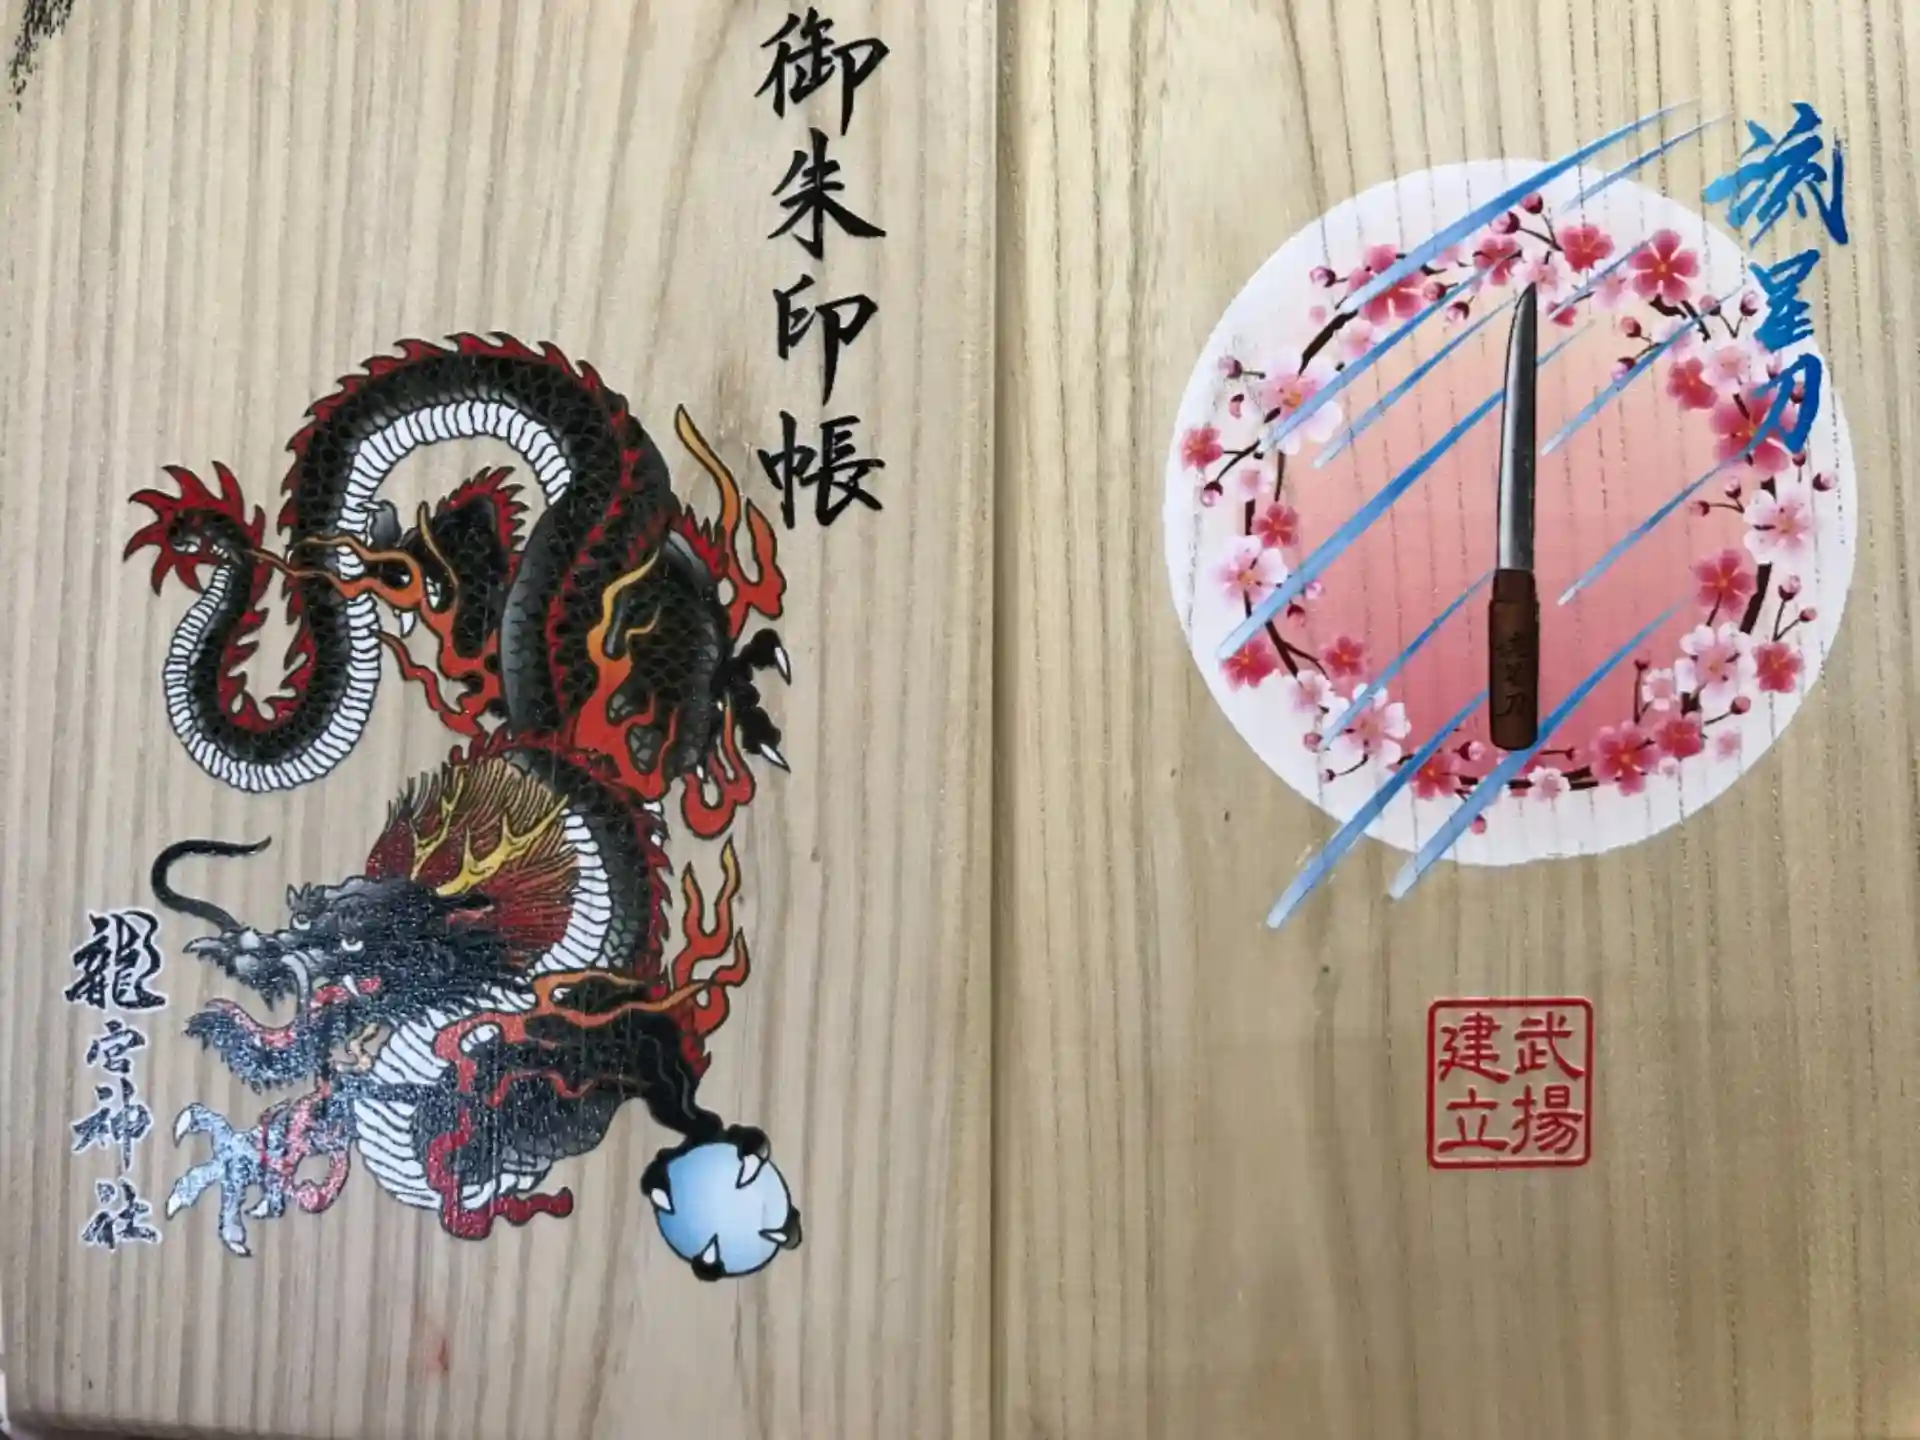 御朱印帳
龍宮神社
流星刀
流星刀
武揚
建立